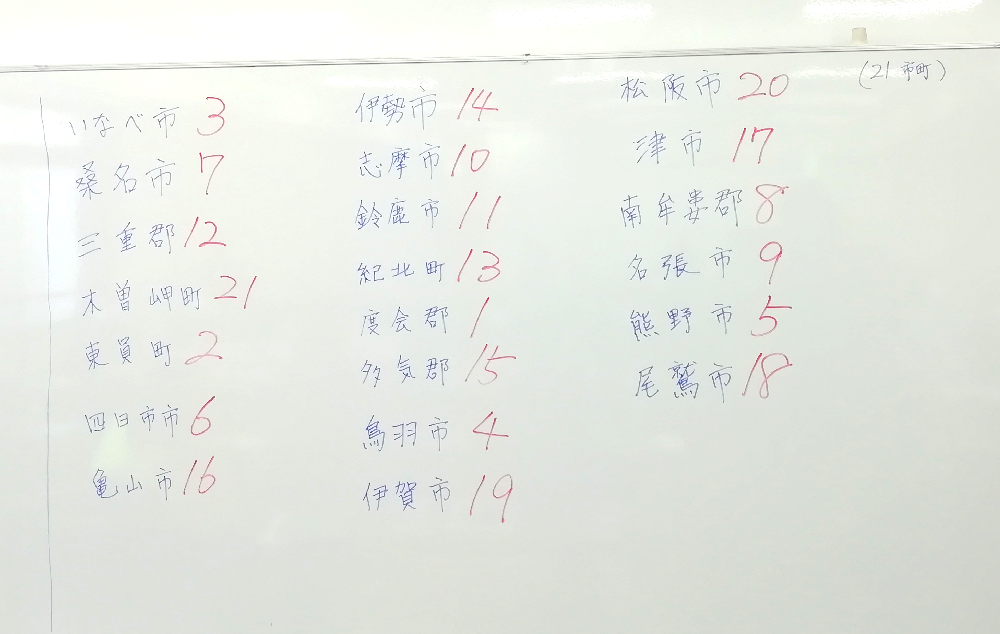 (21 市町)
いなべ市 3
桑名市 7
三重郡 12
木曽岬町 21
東員町 2
四日市市 6
亀山市 16
伊勢市 14
志摩市 10
鈴鹿市 11
紀北町 13
度会郡 1
多気郡 15
鳥羽市 4
伊賀市 19
松阪市 20
津市 17
南牟婁郡 8
名張市 9
熊野市 5
尾鷲市 18